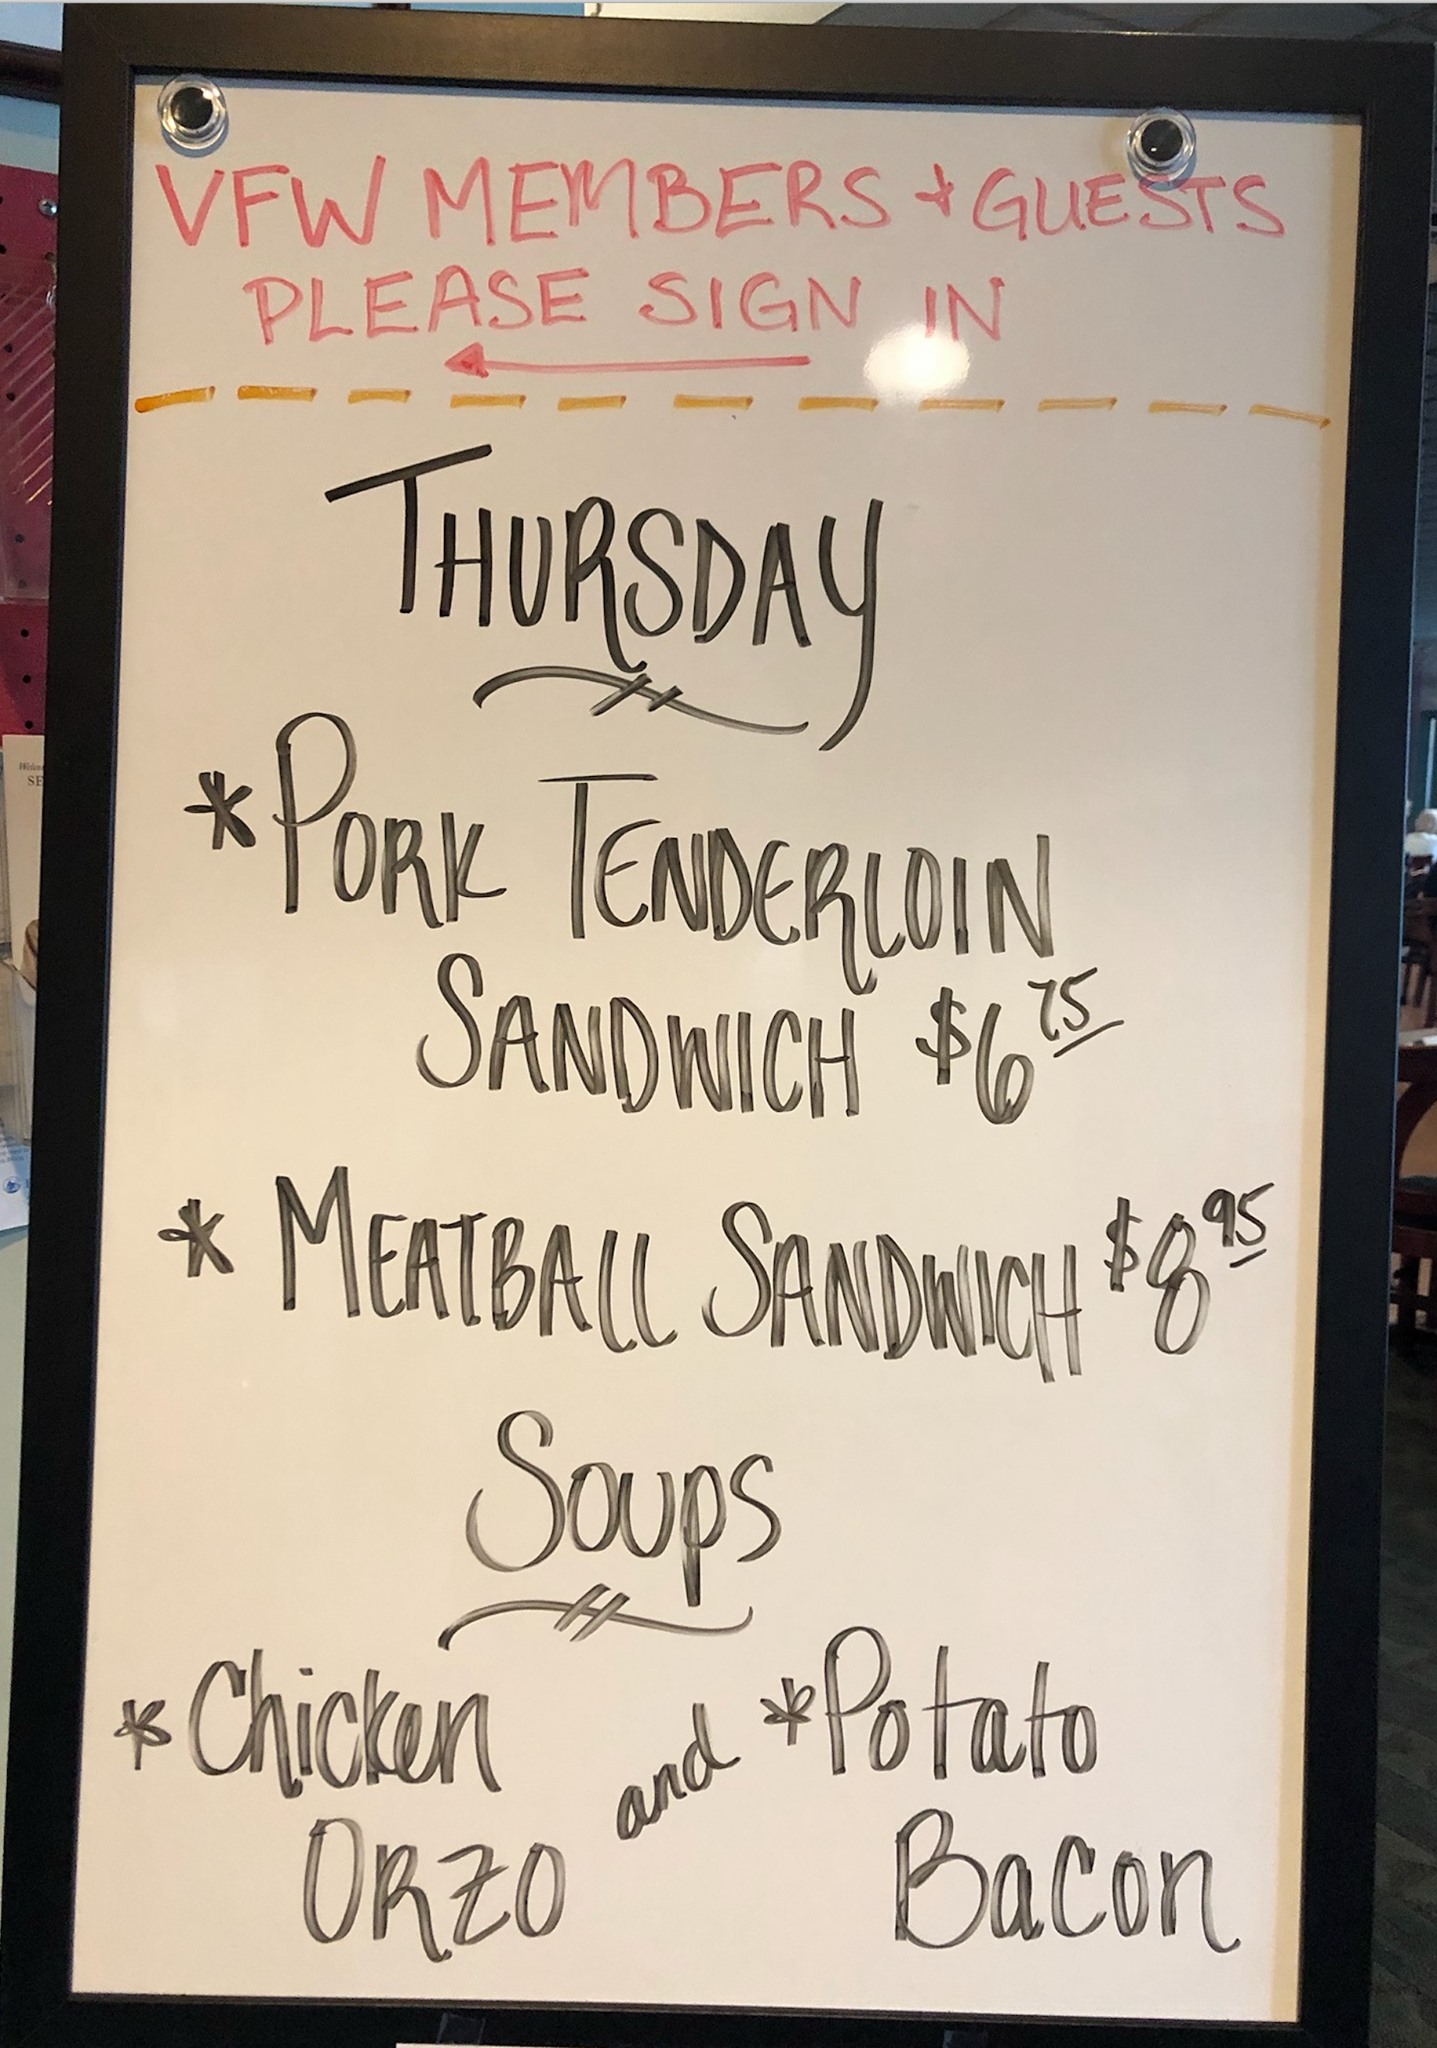 VFW MEMBERS + GUESTS
PLEASE SIGN IN
THURSDAY
* PORK TENDERLOIN
SANDWICH $6 75
* MEATBALL SANDWICH $8 95
Soups
* Chicken and * Potato
ORZO Bacon